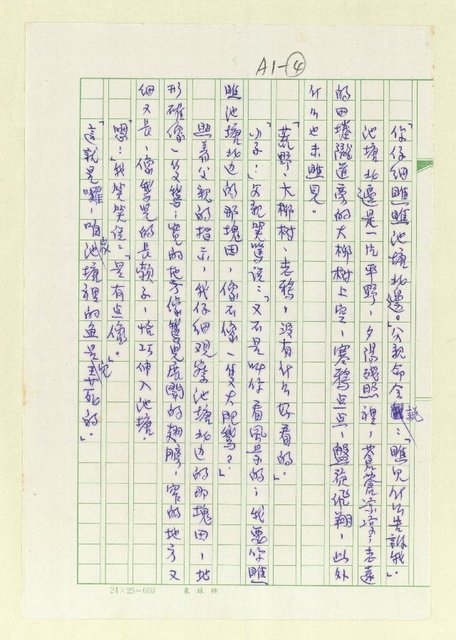 A1-④
「你仔細瞧瞧池塘北邊。」父親命令說：「瞧見什么告訴我。」
池塘北邊是一片平野，夕陽殘照裡，蒼蒼涼涼，老遠
的田塍隴道旁的大柳樹上空，寒鴉点点，盤旋飛翔，此外
什么也未瞧見。
「荒野，大柳樹，老鴉，沒有什么好看的。」
「小子：」父親笑罵說：「又不是叫你看風景的；我要你瞧
瞧池塘北边的那塊田，像不像一隻大肥鵞？」
照着父親的指示，我仔細观察池塘北边的那塊田，地
形確像一隻鵞；寬的地方像鵞兒展開的翅膀，窄的地方又
細又長，像鵞兒的長頸子，恰巧伸入池塘。
「嗯：」我笑笑說：「是有点像。」
「這就是囉，咱家池塘裡的魚是鵞吃的。」
24×25=600